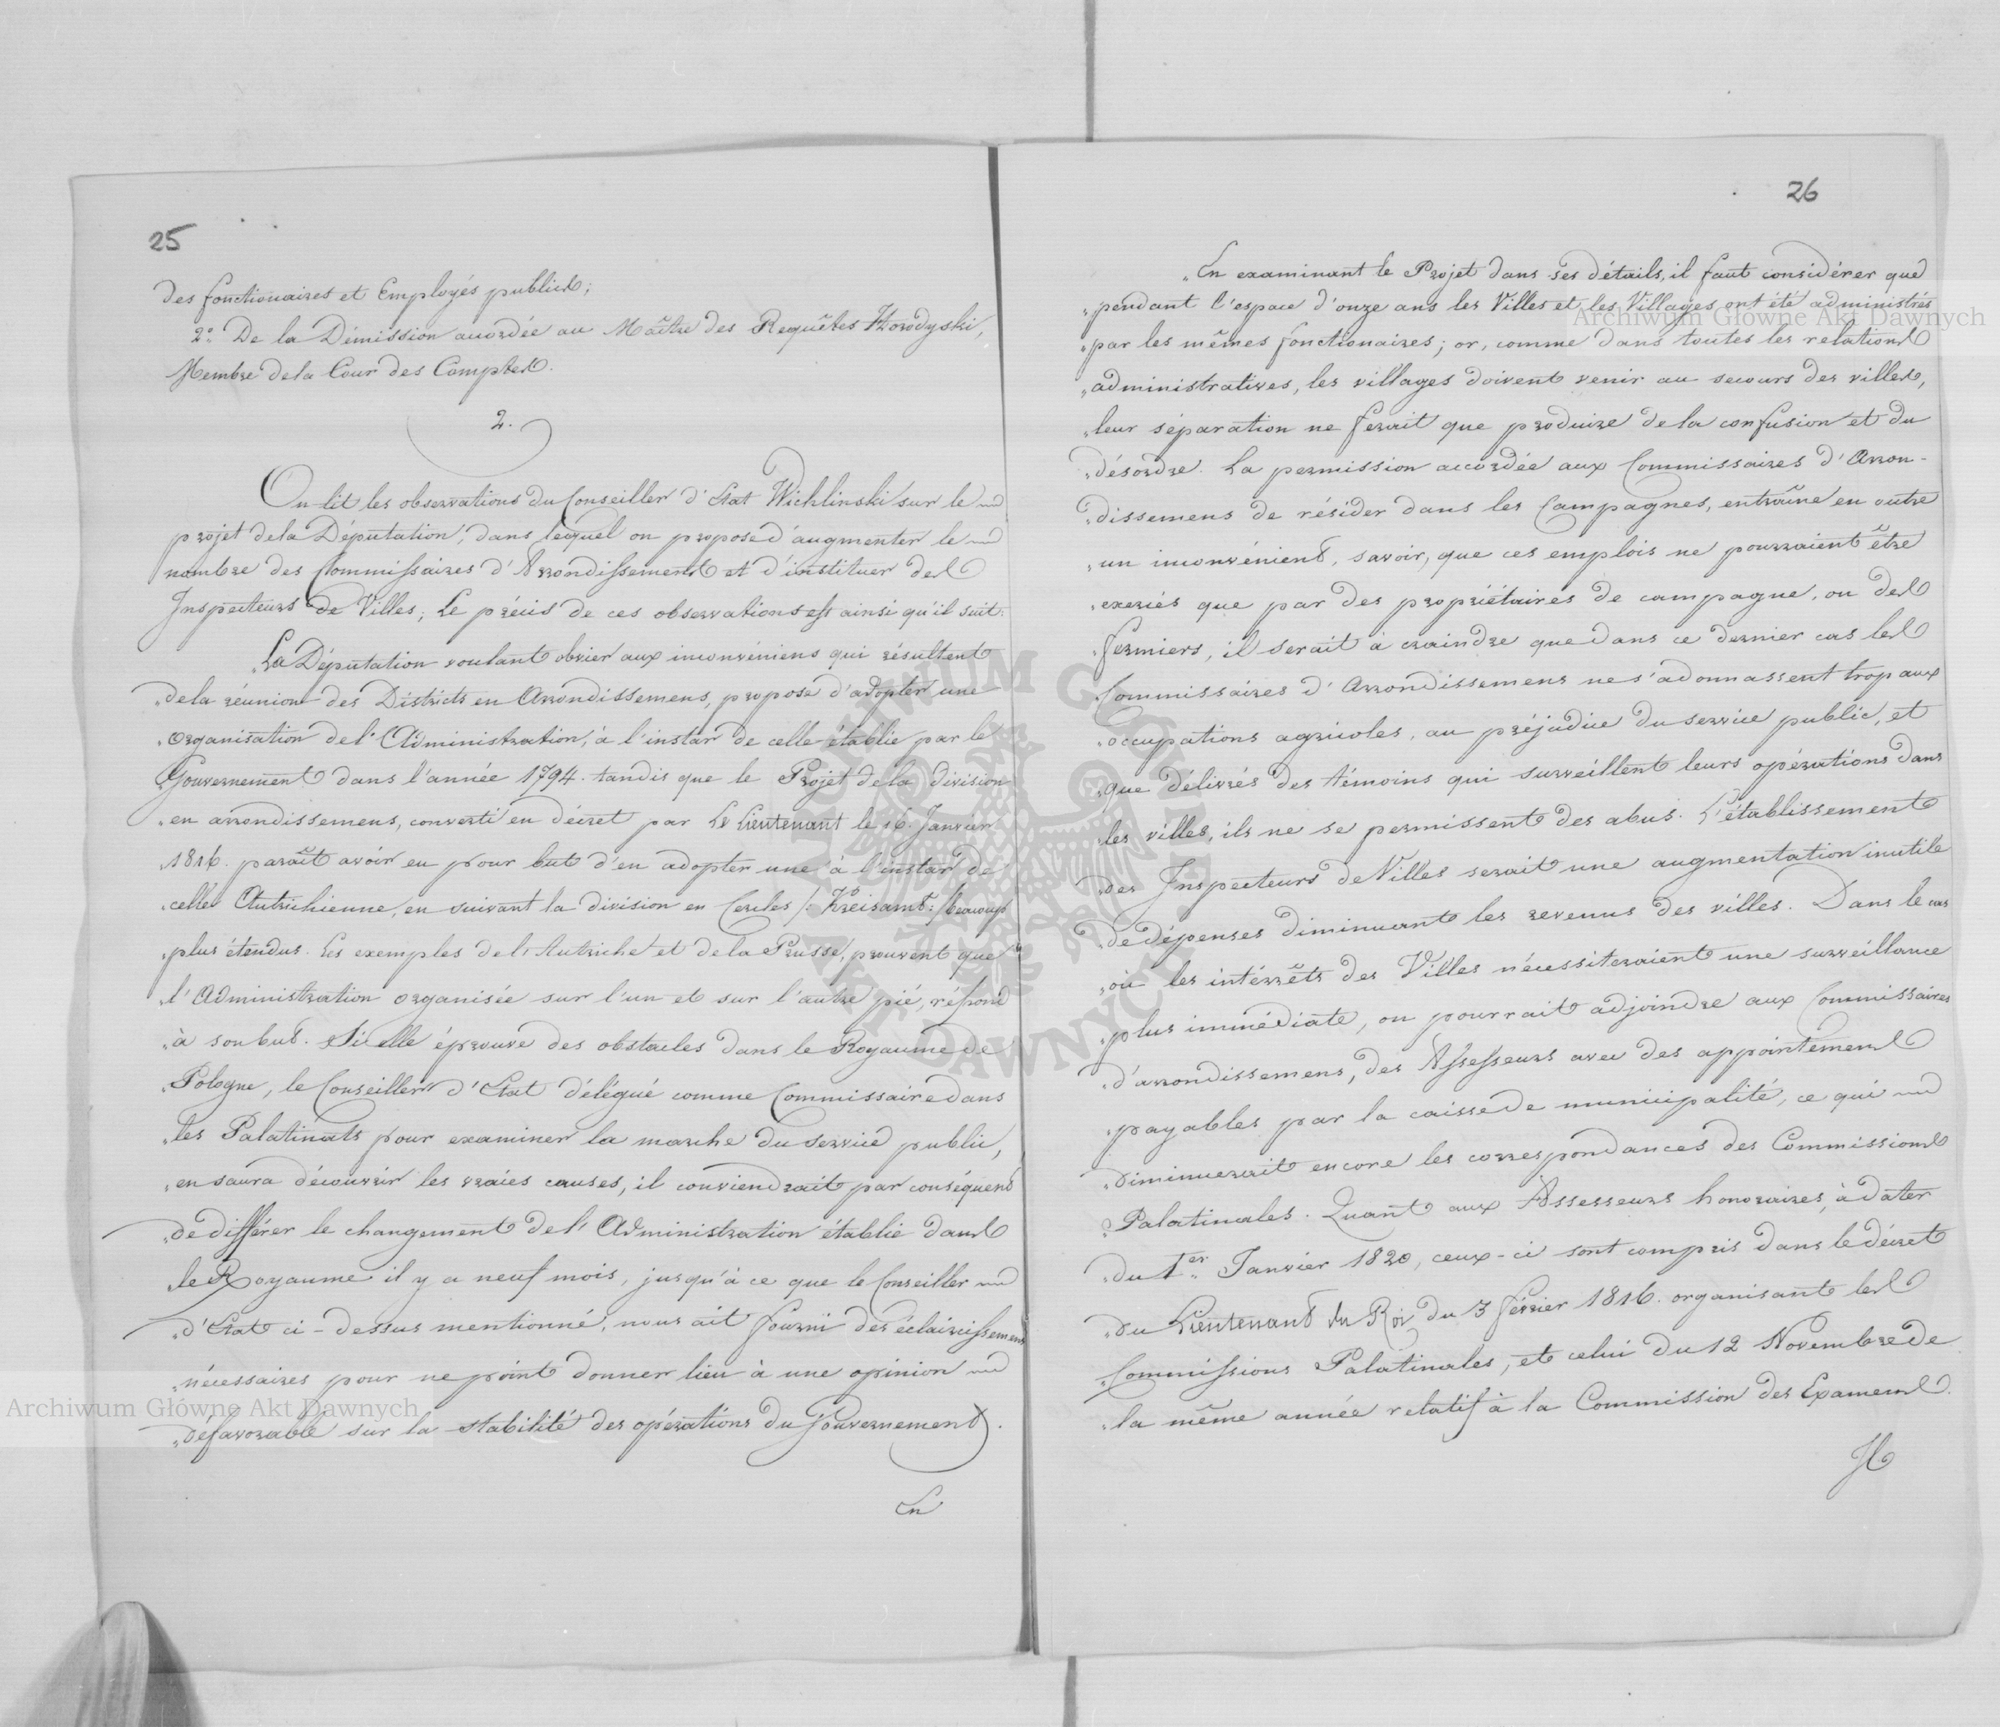 25
des fonctionaires et Employés publics;
2° De la Démission accordée au Maître des Requêtes Horodyski,
Membre de la Cour des Comptes.
2.
On lit les observations du Conseiller d'Etat Wichlinski sur le
projet de la Députation, dans lequel on propose d'augmenter le
nombre des Commissaires d'Arrondissement et d'instituer des
Inspecteurs de Villes; Le précis de ces observations est ainsi qu'il suit:
„La Députation voulant obvier aux inconvéniens qui résultent
„de la réunion des Districts en Arrondissemens, propose d'adopter une
„organisation de l'Administration, à l'instar de celle établie par le
„Gouvernement dans l'année 1794. tandis que le Projet de la division
„en arrondissemens, converti en décret par Le Lieutenant le 16. Janvier
„1816. paraît avoir eu pour but d'en adopter une à l'instar de
„celle Autrichienne, en suivant la division en Cercles /: Kreisamt :/ beaucoup
„plus étendus. Les exemples de l'Autriche et de la Prusse, prouvent que
„l'Administration organisée sur l'un et sur l'autre pié, répond
„à son but. Si elle éprouve des obstacles dans le Royaume de
„Pologne, le Conseiller d'Etat délégué comme Commissaire dans
„les Palatinats pour examiner la marche du service public,
„en saura découvrir les vraies causes, il conviendrait par conséquent
„de différer le changement de l'Administration établie dans
„le Royaume il y a neuf mois, jusqu'à ce que le Conseiller
„d'Etat ci-dessus mentionné, nous ait fourni des éclaircissemens
„nécessaires pour ne point donner lieu à une opinion
„défavorable sur la stabilité des opérations du Gouvernement.
En
26
„En examinant le Projet dans ses détails, il faut considérer que
„pendant l'espace d'onze ans les Villes et les Villages ont été administrés
„par les mêmes fonctionaires; or, comme dans toutes les relations
„administratives, les villages doivent venir au secours des villes,
„leur séparation ne ferait que produire de la confusion et du
„désordre. La permission accordée aux Commissaires d'Arron-
„dissemens de résider dans les Campagnes, entraîne en outre
„un inconvénient, savoir, que ces emplois ne pourraient être
„exercés que par des propriétaires de campagne, ou des
„fermiers, il serait à craindre que dans ce dernier cas les
„Commissaires d'Arrondissemens ne s'adonnassent trop aux
„occupations agricoles, au préjudice du service public, et
„que délivrés des témoins qui surveillent leurs opérations dans
„les villes, ils ne se permissent des abus. L'établissement
„des Inspecteurs de Villes serait une augmentation inutile
„de dépenses diminuant les revenus des villes. Dans le cas
„où les intérrêts des Villes nécessiteraient une surveillance
„plus immédiate, on pourrait adjoindre aux Commissaires
„d'arrondissemens, des Assesseurs avec des appointemens
„payables par la caisse de municipalité, ce qui
„diminuerait encore les correspondances des Commissions
„Palatinales. Quant aux Assesseurs honoraires, à dater
„du 1er Janvier 1820, ceux-ci sont compris dans le décret
„du Lieutenant du Roi du 3 février 1816. organisant les
„Commissions Palatinales, et celui du 12 Novembre de
„la même année relatif à la Commission des Examens.
Il
Archiwum Główne Akt Dawnych
Archiwum Główne Akt Dawnych
ARCHIWUM GŁÓWNE AKT DAWNYCH